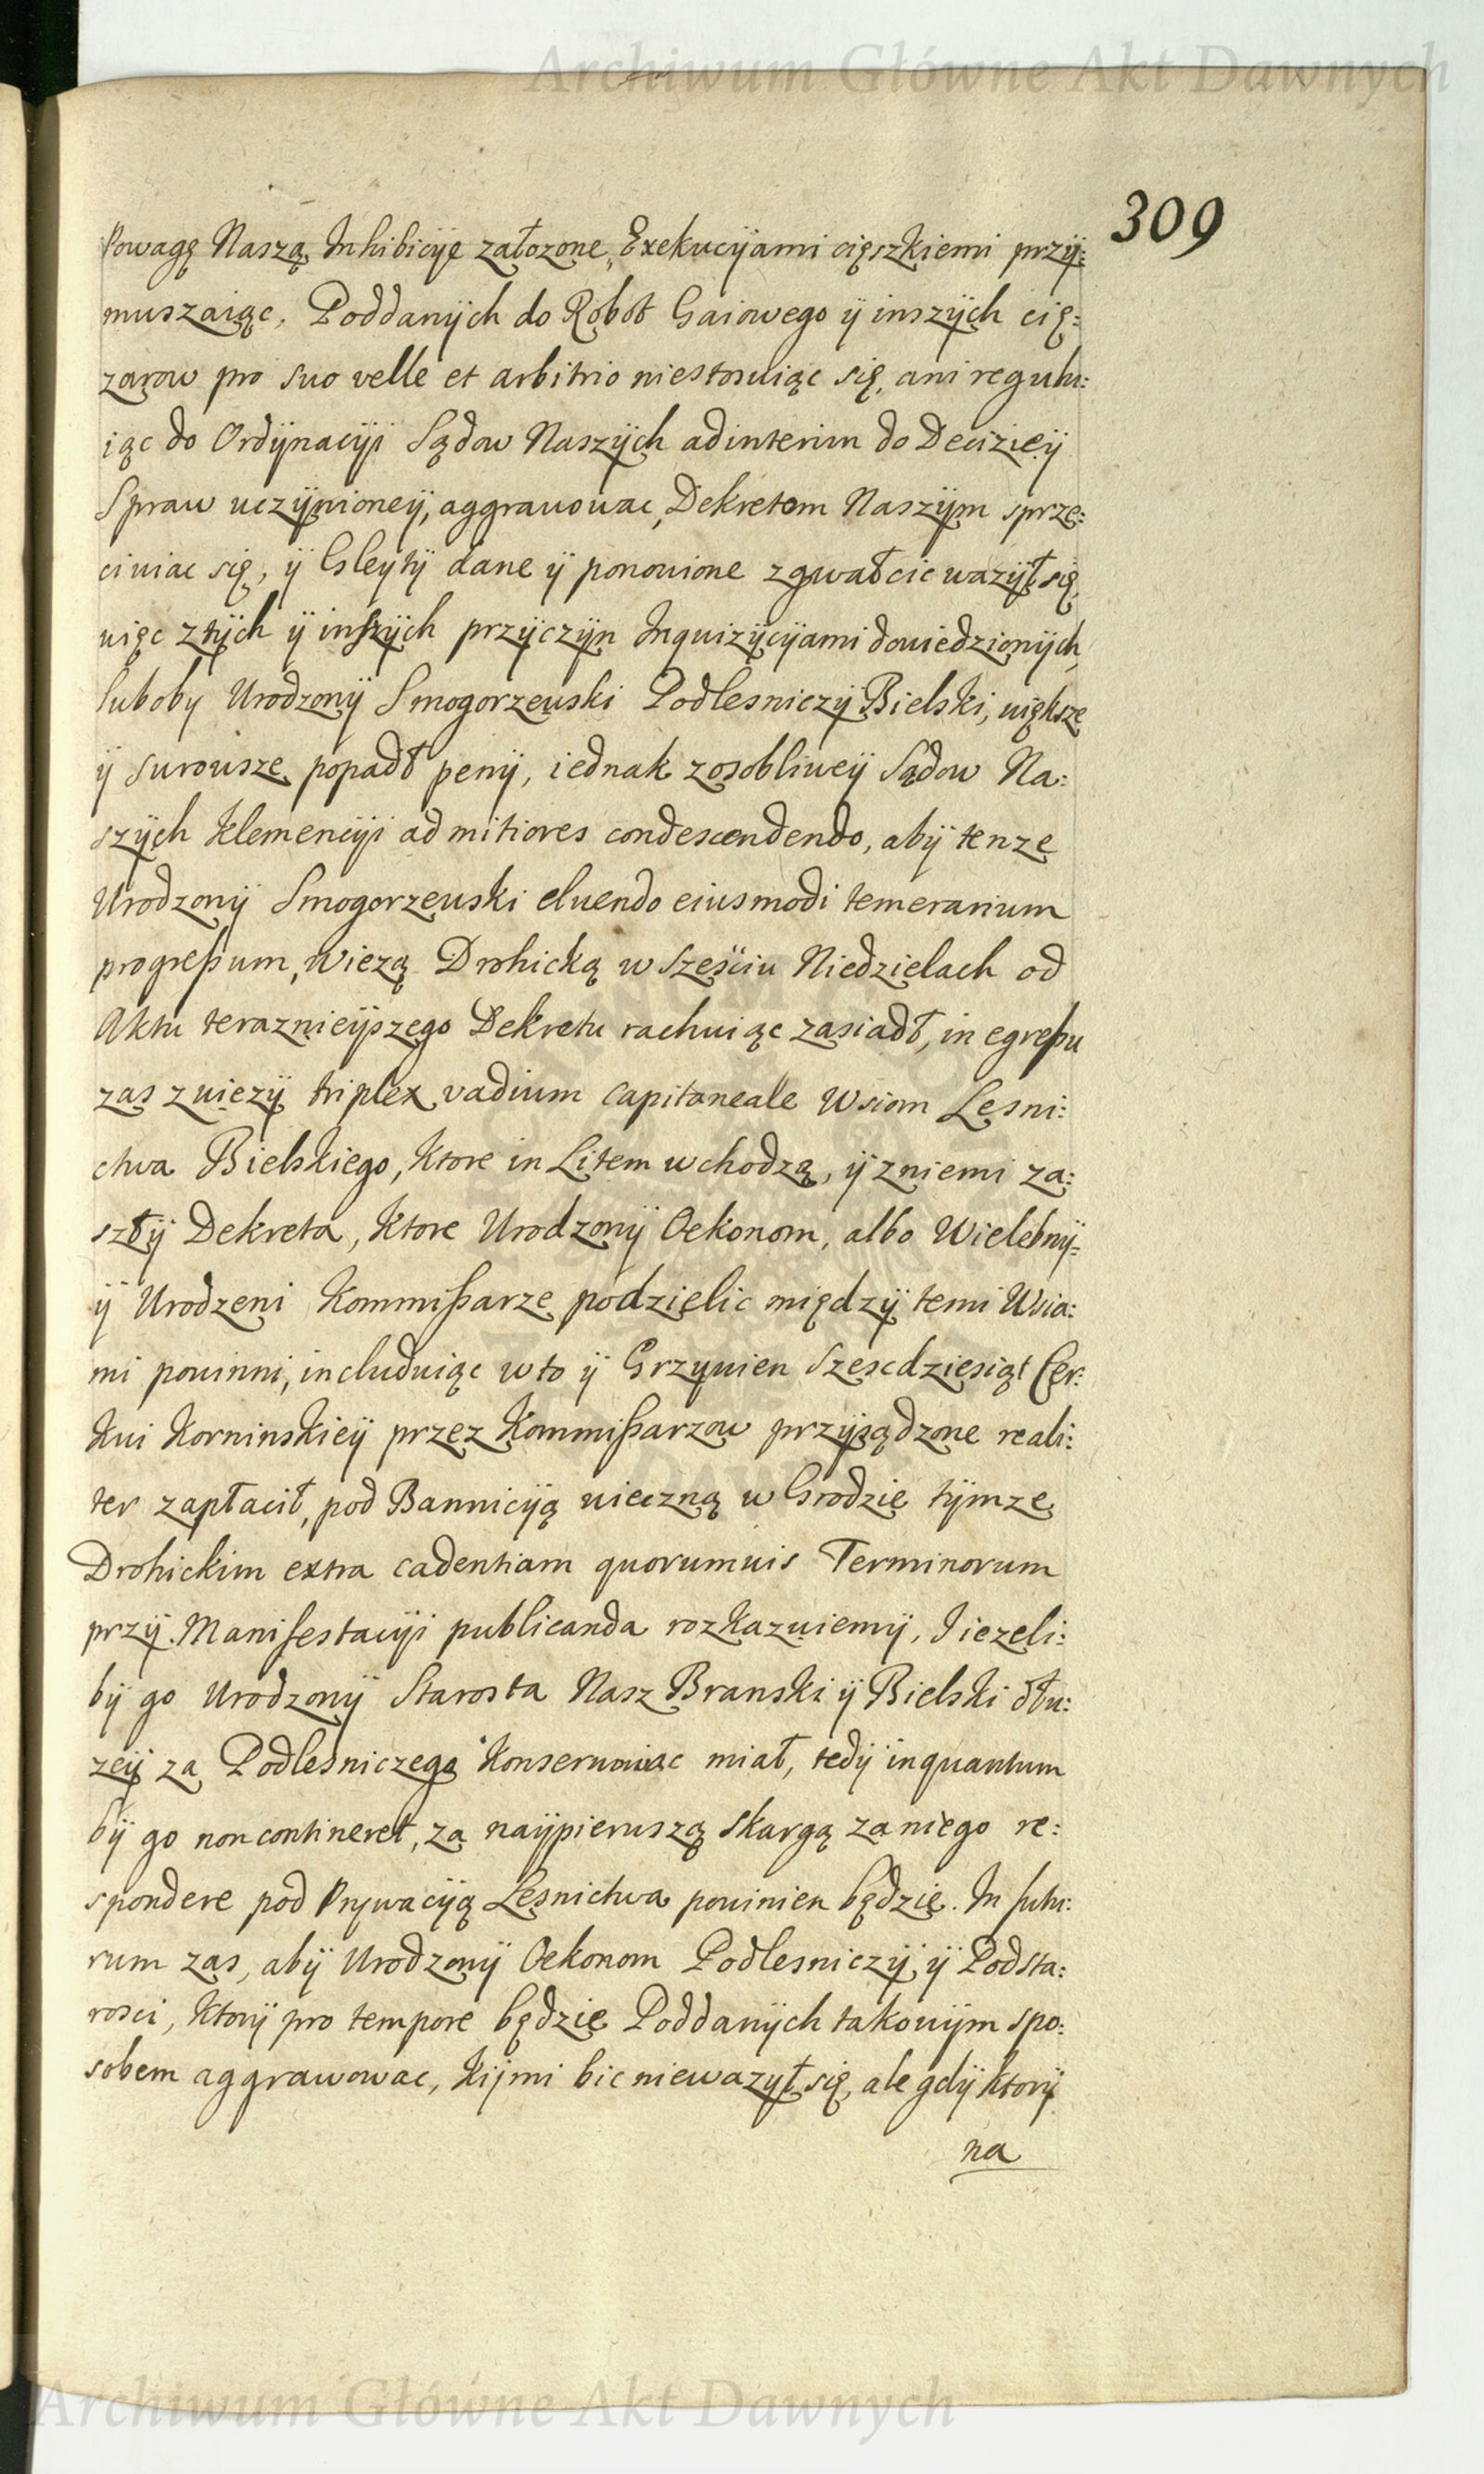 Archiwum Główne Akt Dawnych
309
Powagą Naszą Inhibicÿe załozone, Exekucÿami cięszkiemi przÿ:
muszaiąc, Poddanÿch do Robot Gaiowego ÿ inszÿch cię:
zarow pro suo velle et arbitrio niestosuiąc się, ani regulu:
iąc do Ordÿnacÿi Sądow Naszÿch adinterim do Decizieÿ
Spraw uczÿnioneÿ, aggrauouac, Dekretom Naszÿm sprze:
ciuiac się, ÿ Gleytÿ dane ÿ ponouione zgwałcic wazÿł się,
uięc ztÿch ÿ inszÿch przÿczÿn Inquizÿcÿami douiedzionÿch,
luboby Urodzonÿ Smogorzeuski Podlesniczÿ Bielski, uiększe
ÿ surousze popadł penÿ, iednak zosobliueÿ Sądow Na:
szÿch Klemencÿi ad mitiores condescendendo, abÿ tenze
Urodzonÿ Smogorzeuski eluendo eiusmodi temerarium
progreßum, wiezą Drohicką w sześciu Niedzielach od
Aktu teraznieÿszego Dekretu rachuiąc zasiadł, in egreßu
zas zuiezÿ triplex vadium capitaneale Wsiom Lesni:
ctwa Bielskiego, Ktore in Litem wchodzą, ÿ zniemi za:
szłÿ Dekreta, Ktore Urodzonÿ Oekonom, albo Wielebnÿ:
ÿ Urodzeni Kommißarze podzielic międzÿ temi Wsia:
mi pouinni, includuiąc wto ÿ Grzÿuien szescdziesiąt Cer:
kui Korninskieÿ przez Kommißarzow przÿsądzone reali:
ter zapłacił, pod Bannicÿą uieczną w Grodzie tÿmze
Drohickim extra cadentiam quorumuis Terminorum
przÿ Manifestacÿi publicanda rozkazuiemÿ, I iezeli:
bÿ go Urodzonÿ Starosta Nasz Branski ÿ Bielski dłu:
zeÿ za Podlesniczego Konseruouac miał, tedÿ inquantum
bÿ go non contineret, za naÿpieruszą skargą za niego re:
spondere pod Prÿwacÿą Lesnictwa pouinien będzie. In futu:
rum zas, abÿ Urodzonÿ Oekonom Podlesniczÿ, ÿ Podsta:
rosci, Ktorÿ pro tempore będzie Poddanÿch takouÿm spo:
sobem aggrawowac, Kijmi bic niewazÿł się, ale gdÿ ktorÿ
na
Archiwum Główne Akt Dawnych